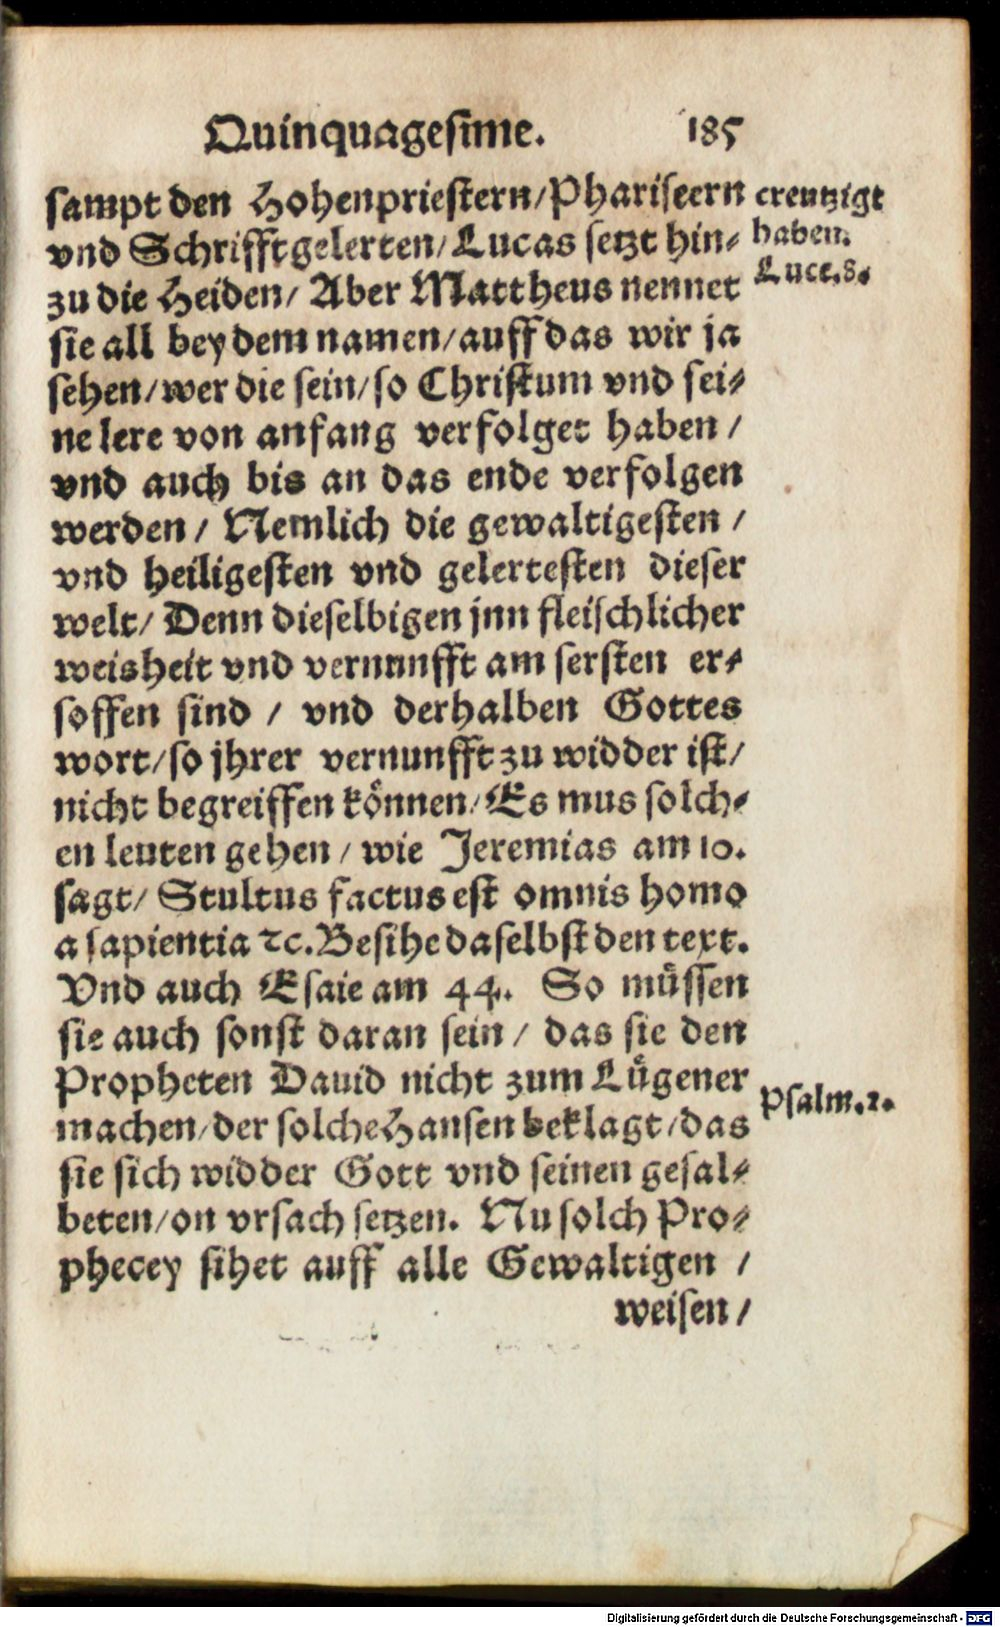 Quinquagesime. 185
sampt den Hohenpriestern/Phariseern
vnd Schrifftgelerten/Lucas setzt hin-
zu die Heiden/ Aber Mattheus nennet
sie all bey dem namen/auff das wir ja
sehen/wer die sein/so Christum vnd sei-
ne lere von anfang verfolget haben/
vnd auch bis an das ende verfolgen
werden/ Nemlich die gewaltigesten/
vnd heiligesten vnd gelertesten dieser
welt/ Denn dieselbigen jnn fleischlicher
weisheit vnd vernunfft am sersten er-
soffen sind / vnd derhalben Gottes
wort/so jhrer vernunfft zu widder ist/
nicht begreiffen können/Es mus solch-
en leuten gehen/ wie Jeremias am 10.
sagt/ Stultus factus est omnis homo
a sapientia ꝛc. Besihe daselbst den text.
Vnd auch Esaie am 44. So müssen
sie auch sonst daran sein/ das sie den
Propheten Dauid nicht zum Lügener
machen/der solche Hansen beklagt/das
sie sich widder Gott vnd seinen gesal-
beten/on vrsach setzen. Nu solch Pro-
phecey sihet auff alle Gewaltigen /
weisen/
creutzigt
haben.
Luce.8.
Psalm.2.
Digitalisierung gefördert durch die Deutsche Forschungsgemeinschaft - DFG